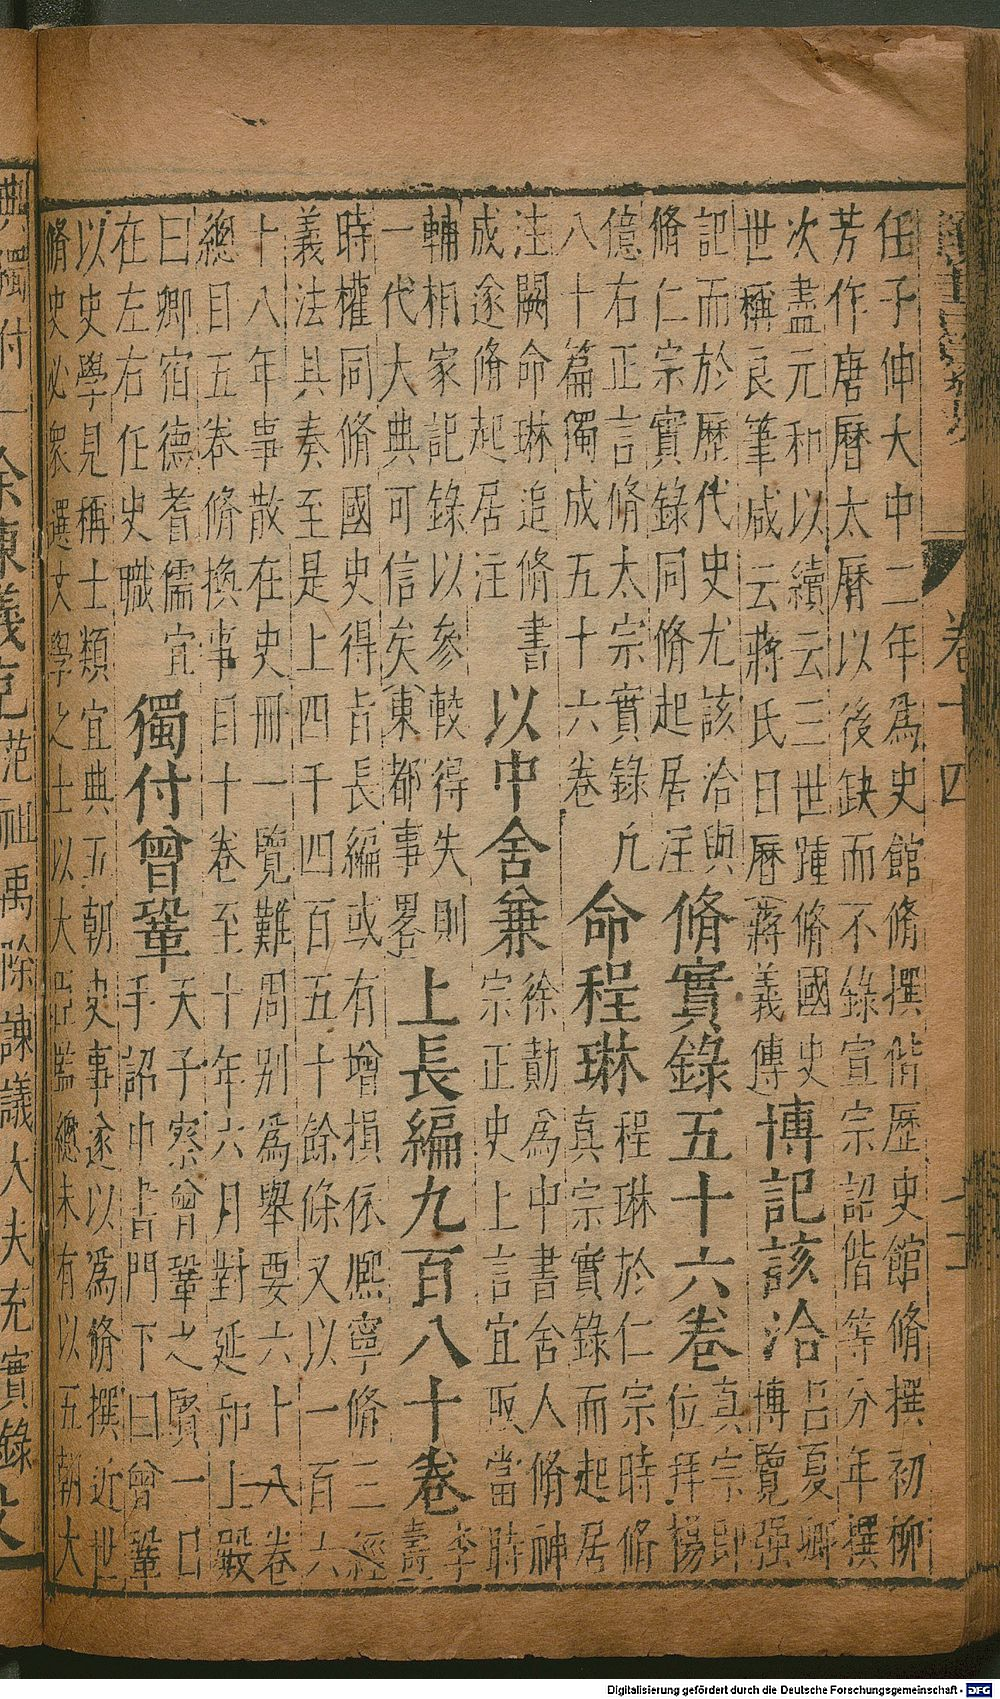 卷十四
任子伸大中二年爲史館脩撰偕歷史館脩撰初柳
芳作唐曆太曆以後缺而不錄宣宗詔偕等分年撰
次盡元和以續云三世踵脩國史
世稱良筆咸云蔣氏日曆蔣義傳
博記該洽
呂夏卿
博覽强
記而於歷代史尤該洽與
脩仁宗實錄同脩起居注
脩實錄五十六卷
真宗即
位拜楊
億右正言脩太宗實錄凢
八十篇獨成五十六卷
命程琳
程琳於仁宗時脩
真宗實錄而起居
注闕命琳追脩書
成遂脩起居注
以中舍兼
徐勣爲中書舍人脩神
宗正史上言宜取當時
輔相家記錄以參較得失則
一代大典可信矣東都事畧
上長編九百八十卷
李
燾
時權同脩國史得旨長編或有增損依熙寧脩三經
義法具奏至是上四千四百五十餘條又以一百六
十八年事散在史冊一覽難周別爲舉要六十八卷
總目五卷脩換事目十卷至十年六月對延和上殿
曰卿宿德耆儒宜
在左右任史職
獨付曾鞏
天子察曾鞏之賢一日
手詔中書門下曰曾鞏
以史學見稱士類宜典五朝史事遂以爲脩撰近世
脩史必衆選文學之士以大臣監總未有以五朝大
典獨付一
范祖禹除諫議大夫充實錄
Digitalisierung gefördert durch die Deutsche Forschungsgemeinschaft - DFG